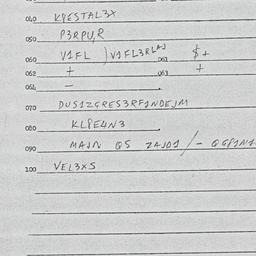 040 KPESTAL3X
050 P3RPU,R
060 V1FL )V1FL3RLAJ 061 $+
062 + 063 +
064 –
070 DUS1ZGRES3RF1NDEJM
080 KLPE4N3
090 MAJN Q5 ZAJD1 / -
100 VEL3XS